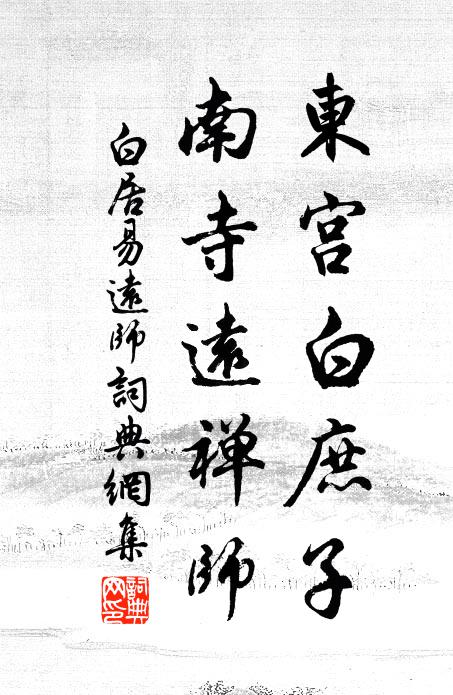 東宮白庶子
南寺遠禅師
白居易遠師詞典網集
詞典網印